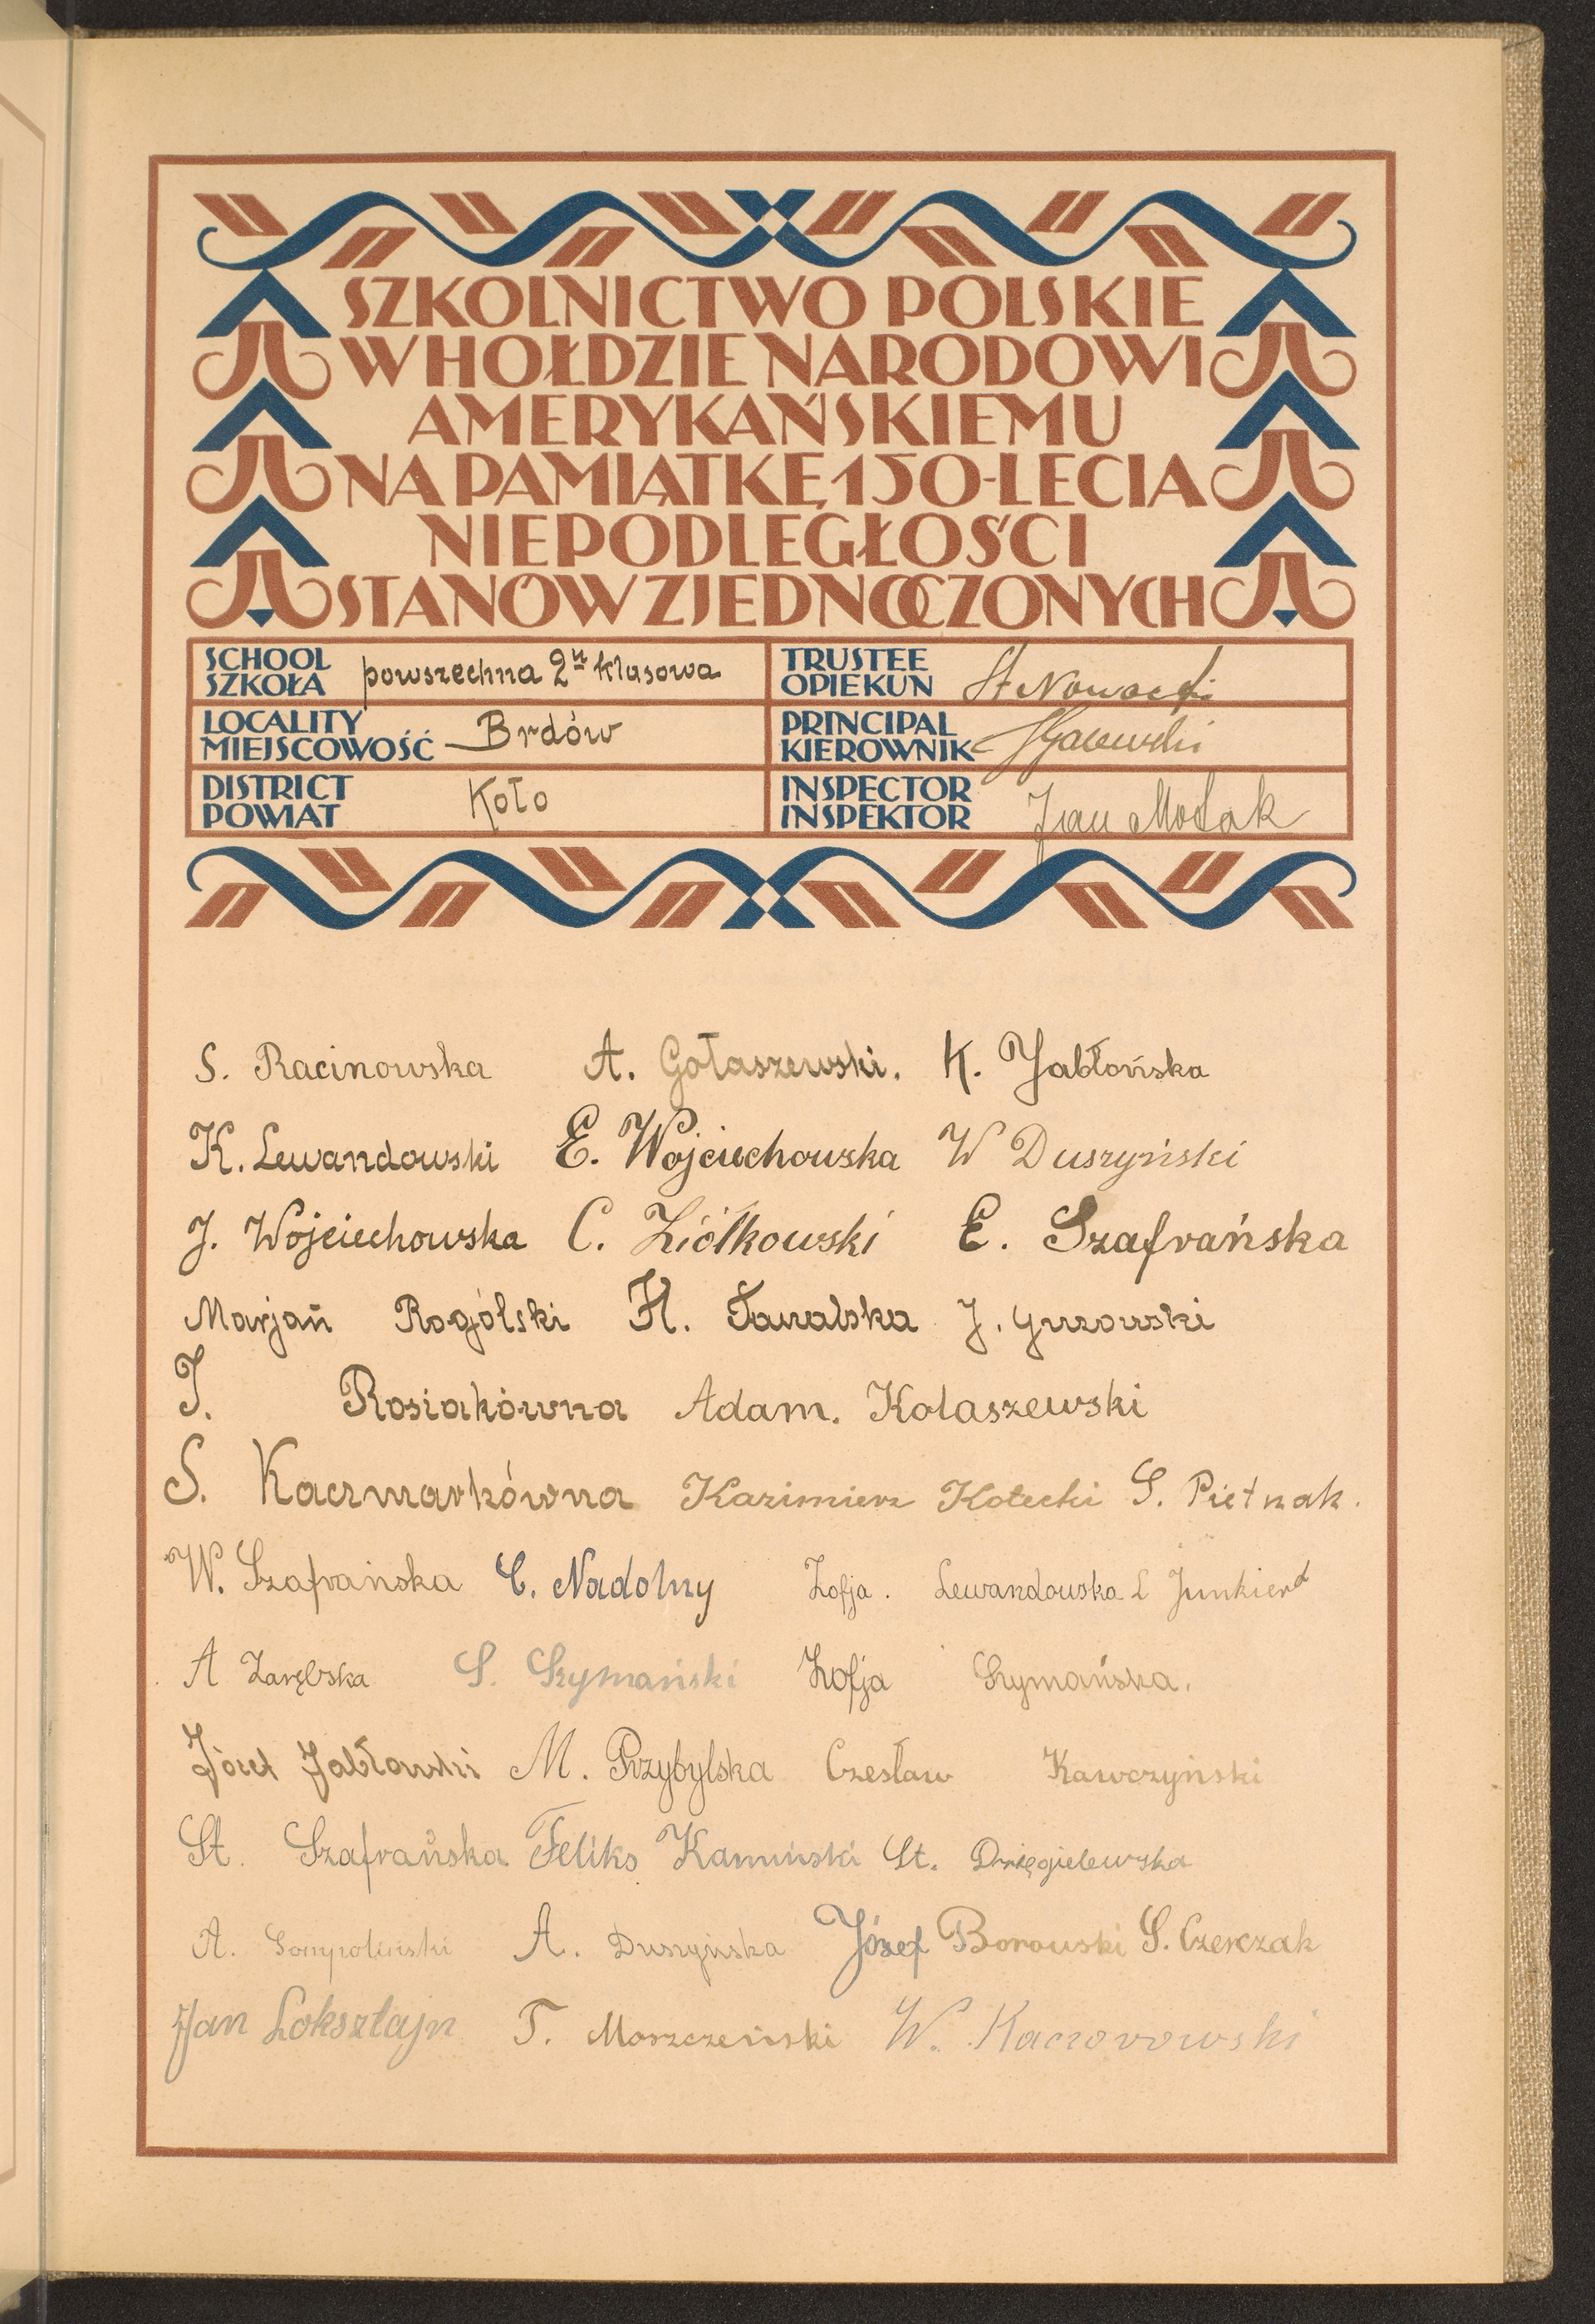 SZKOLNICTWO POLSKIE
W HOŁDZIE NARODOWI
AMERYKAŃSKIEMU
NA PAMIĄTKĘ 150-LECIA
NIEPODLEGŁOŚCI
STANÓW ZJEDNOCZONYCH
SCHOOL
SZKOŁA powszechna 2u klasowa
TRUSTEE
OPIEKUN St Nowacki
LOCALITY
MIEJSCOWOŚĆ Brdów
PRINCIPAL
KIEROWNIK
DISTRICT
POWIAT Koło
INSPECTOR
INSPEKTOR Jan
S. Racinowska A. Gołaszewski. K. Jabłońska
K. Lewandowski E. Wojciechowska W Duszyński
J. Wojciechowska C. Ziółkowski E. Szafrańska
Marjań Rogólski H. J. Guzowski
J. Rosiakówna Adam. Kolaszewski
S. Kaczmarkówna Kazimierz Kotecki S. Pietrzak.
W. Szafrańska C. Nadolny Zofja. Lewandowska L Junkiert
A Zarębska S. Szymański Zofja Szymańska.
Józef Jabłoński M. Przybylska Czesław Kawczyński
St. Szafrańska Feliks Kamiński St. Dzięgielewska
A. Sompoliński A. Duszyńska Józef Borowski S. Czerczak
Jan Loksztajn T. Moszczeński W. Kaczorowski